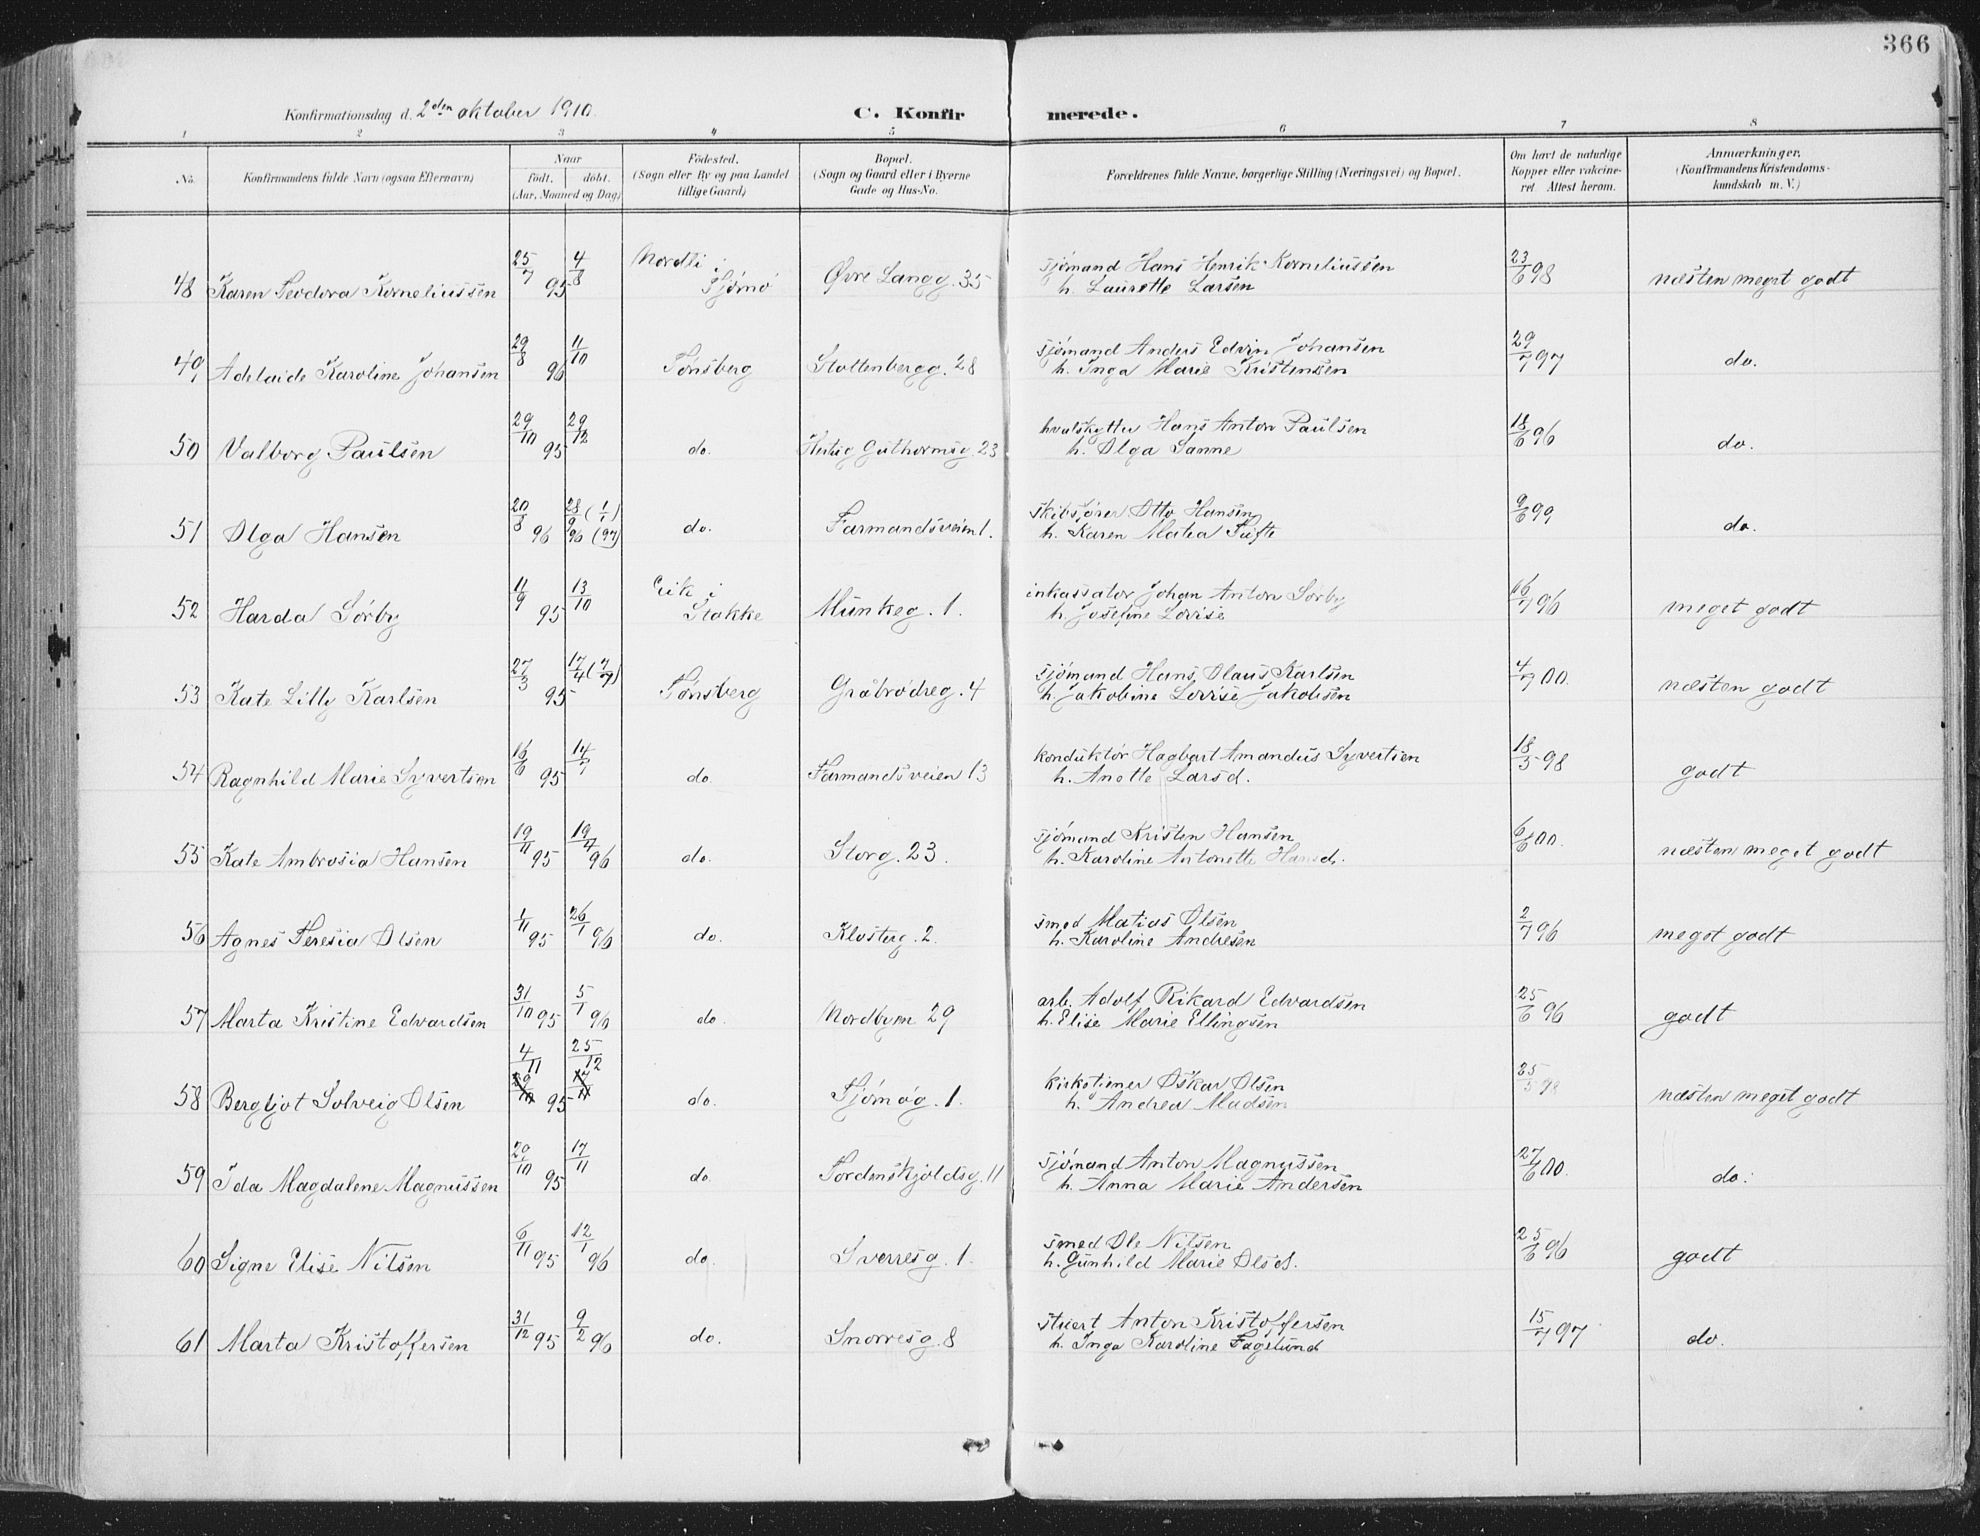 366
Konfirmationsdag d. 2den oktober 1910. C. Konfirmerede.
1 2 3 4 5 6 7 8
No. Konfirmandens fulde Navn (ogsaa Efternavn) Naar født. døbt. (Aar, Maaned og Dag) Fødested. (Sogn eller By og paa Landet tillige Gaard) Bopæl. (Sogn og Gaard eller i Byerne Gade og Hus-No. Forældrenes fulde Navne, borgerlige Stilling (Næringsvei) og Bopæl. Om havt de naturlige Kopper eller vakcineret. Attest herom. Anmærkninger, (Konfirmandens Kristendomskundskab m. V.)
48 Karen Teodora Korneliussen 25/7 95 4/8 Nordli i Tjømø Øvre Langg. 35 sjømand Hans Henrik Korneliussen 23/6 98 næsten meget godt
h. Laurette Larsen
49 Adelaide Karoline Johansen 29/8 96 11/10 Tønsberg Stoltenbergg. 28 sjømand Anders Edvin Johansen 29/7 97 do.
h. Inga Marie Kristensen
50 Valborg Paulsen 29/10 95 29/12 do. Hertug Guthormsg. 23 hvalskytter Hans Anton Paulsen 18/6 96 do.
h. Olga Sanne
51 Olga Hansen 20/8 96 28/9 96 (1/1 97) do. Farmandsveien 1. skibsfører Otto Hansen 9/6 99 do.
h. Karen Matea Tufte
52 Harda Sørby 11/9 95 13/10 Eik i Stokke Munkeg. 1. inkassator Johan Anton Sørby 16/7 96 meget godt
h. Josefine Lovise
53 Kate Lilly Karlsen 27/3 95 17/4 (7/7) Tønsberg Gråbrødreg. 4 sjømand Hans Olaus Karlsen 4/7 00. næsten godt
h. Jakobine Lovise Jakobsen
54 Ragnhild Marie Syvertsen 16/6 95 14/7 do. Farmandsveien 13 konduktør Hagbart Amandus Syvertsen 18/5 98 godt
h. Anette Larsd.
55 Kate Ambrosia Hansen 19/11 95 19/4 96 do. Storg. 23. sjømand Kristen Hansen 6/6 00. næsten meget godt
h. Karoline Antonette Hansd.
56 Agnes Teresia Olsen 1/11 95 26/1 96 do. Klosterg. 2. smed Matias Olsen 2/7 96 meget godt
h. Karoline Andresen
57 Marta Kristine Edvardsen 31/10 95 5/1 96 do. Nordbyen 29 arb. Adolf Rikard Edvardsen 25/6 96 godt
h. Elise Marie Ellingsen
58 Bergljot Solveig Olsen 4/11 29/10 95 25/12 17/11 do. Tjømøg. 1. kirketjener Oskar Olsen 25/5 98 næsten meget godt
h. Andrea Madsen
59 Ida Magdalene Magnussen 29/10 95 17/11 do. Tordenskjoldsg. 11 sjømand Anton Magnussen 27/6 00. do.
h. Anna Marie Andersen
60 Signe Elise Nilsen 6/11 95 12/1 96 do. Sverresg. 1. smed Ole Nilsen 25/6 96 godt
h. Gunhild Marie Olsd.
61 Marta Kristoffersen 31/12 95 9/2 96 do. Snorresg. 8 stuert Anton Kristoffersen 15/7 97 do.
h. Inga Karoline Fagelund